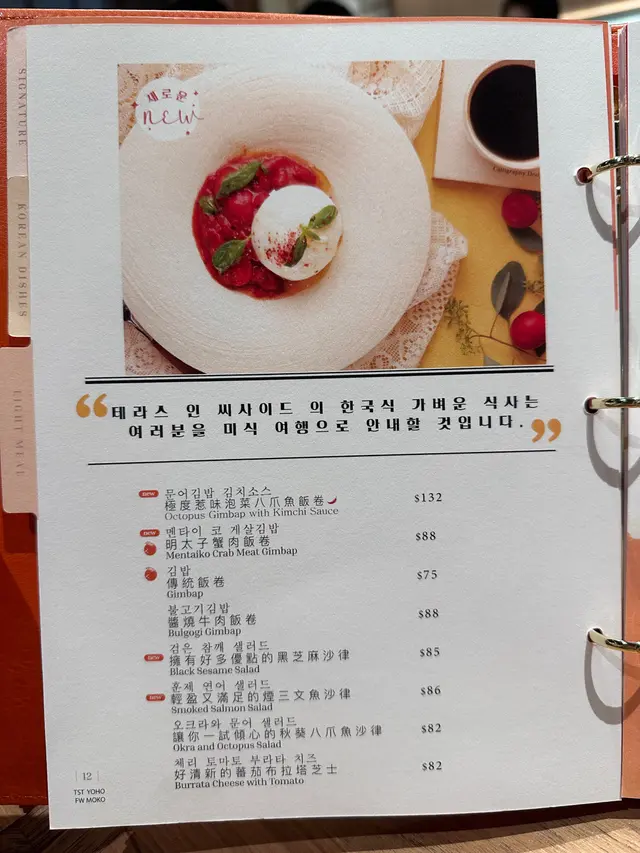 SIGNATURE
KOREAN DISHES
LIGHT MEAL
새로운
NEW
“테라스 인 씨사이드 의 한국식 가벼운 식사는
여러분을 미식 여행으로 안내할 것입니다.”
new 문어김밥 김치소스
極度惹味泡菜八爪魚飯卷 $132
Octopus Gimbap with Kimchi Sauce
new 멘타이 코 게살김밥
明太子蟹肉飯卷 $88
Mentaiko Crab Meat Gimbap
김밥
傳統飯卷 $75
Gimbap
불고기김밥
醬燒牛肉飯卷 $88
Bulgogi Gimbap
검은 참깨 샐러드
new 擁有好多優點的黑芝麻沙律 $85
Black Sesame Salad
훈제 연어 샐러드
new 輕盈又滿足的煙三文魚沙律 $86
Smoked Salmon Salad
오크라와 문어 샐러드
讓你一試傾心的秋葵八爪魚沙律 $82
Okra and Octopus Salad
체리 토마토 부라타 치즈
好清新的蕃茄布拉塔芝士 $82
Burrata Cheese with Tomato
| 12 |
TST YOHO
FW MOKO